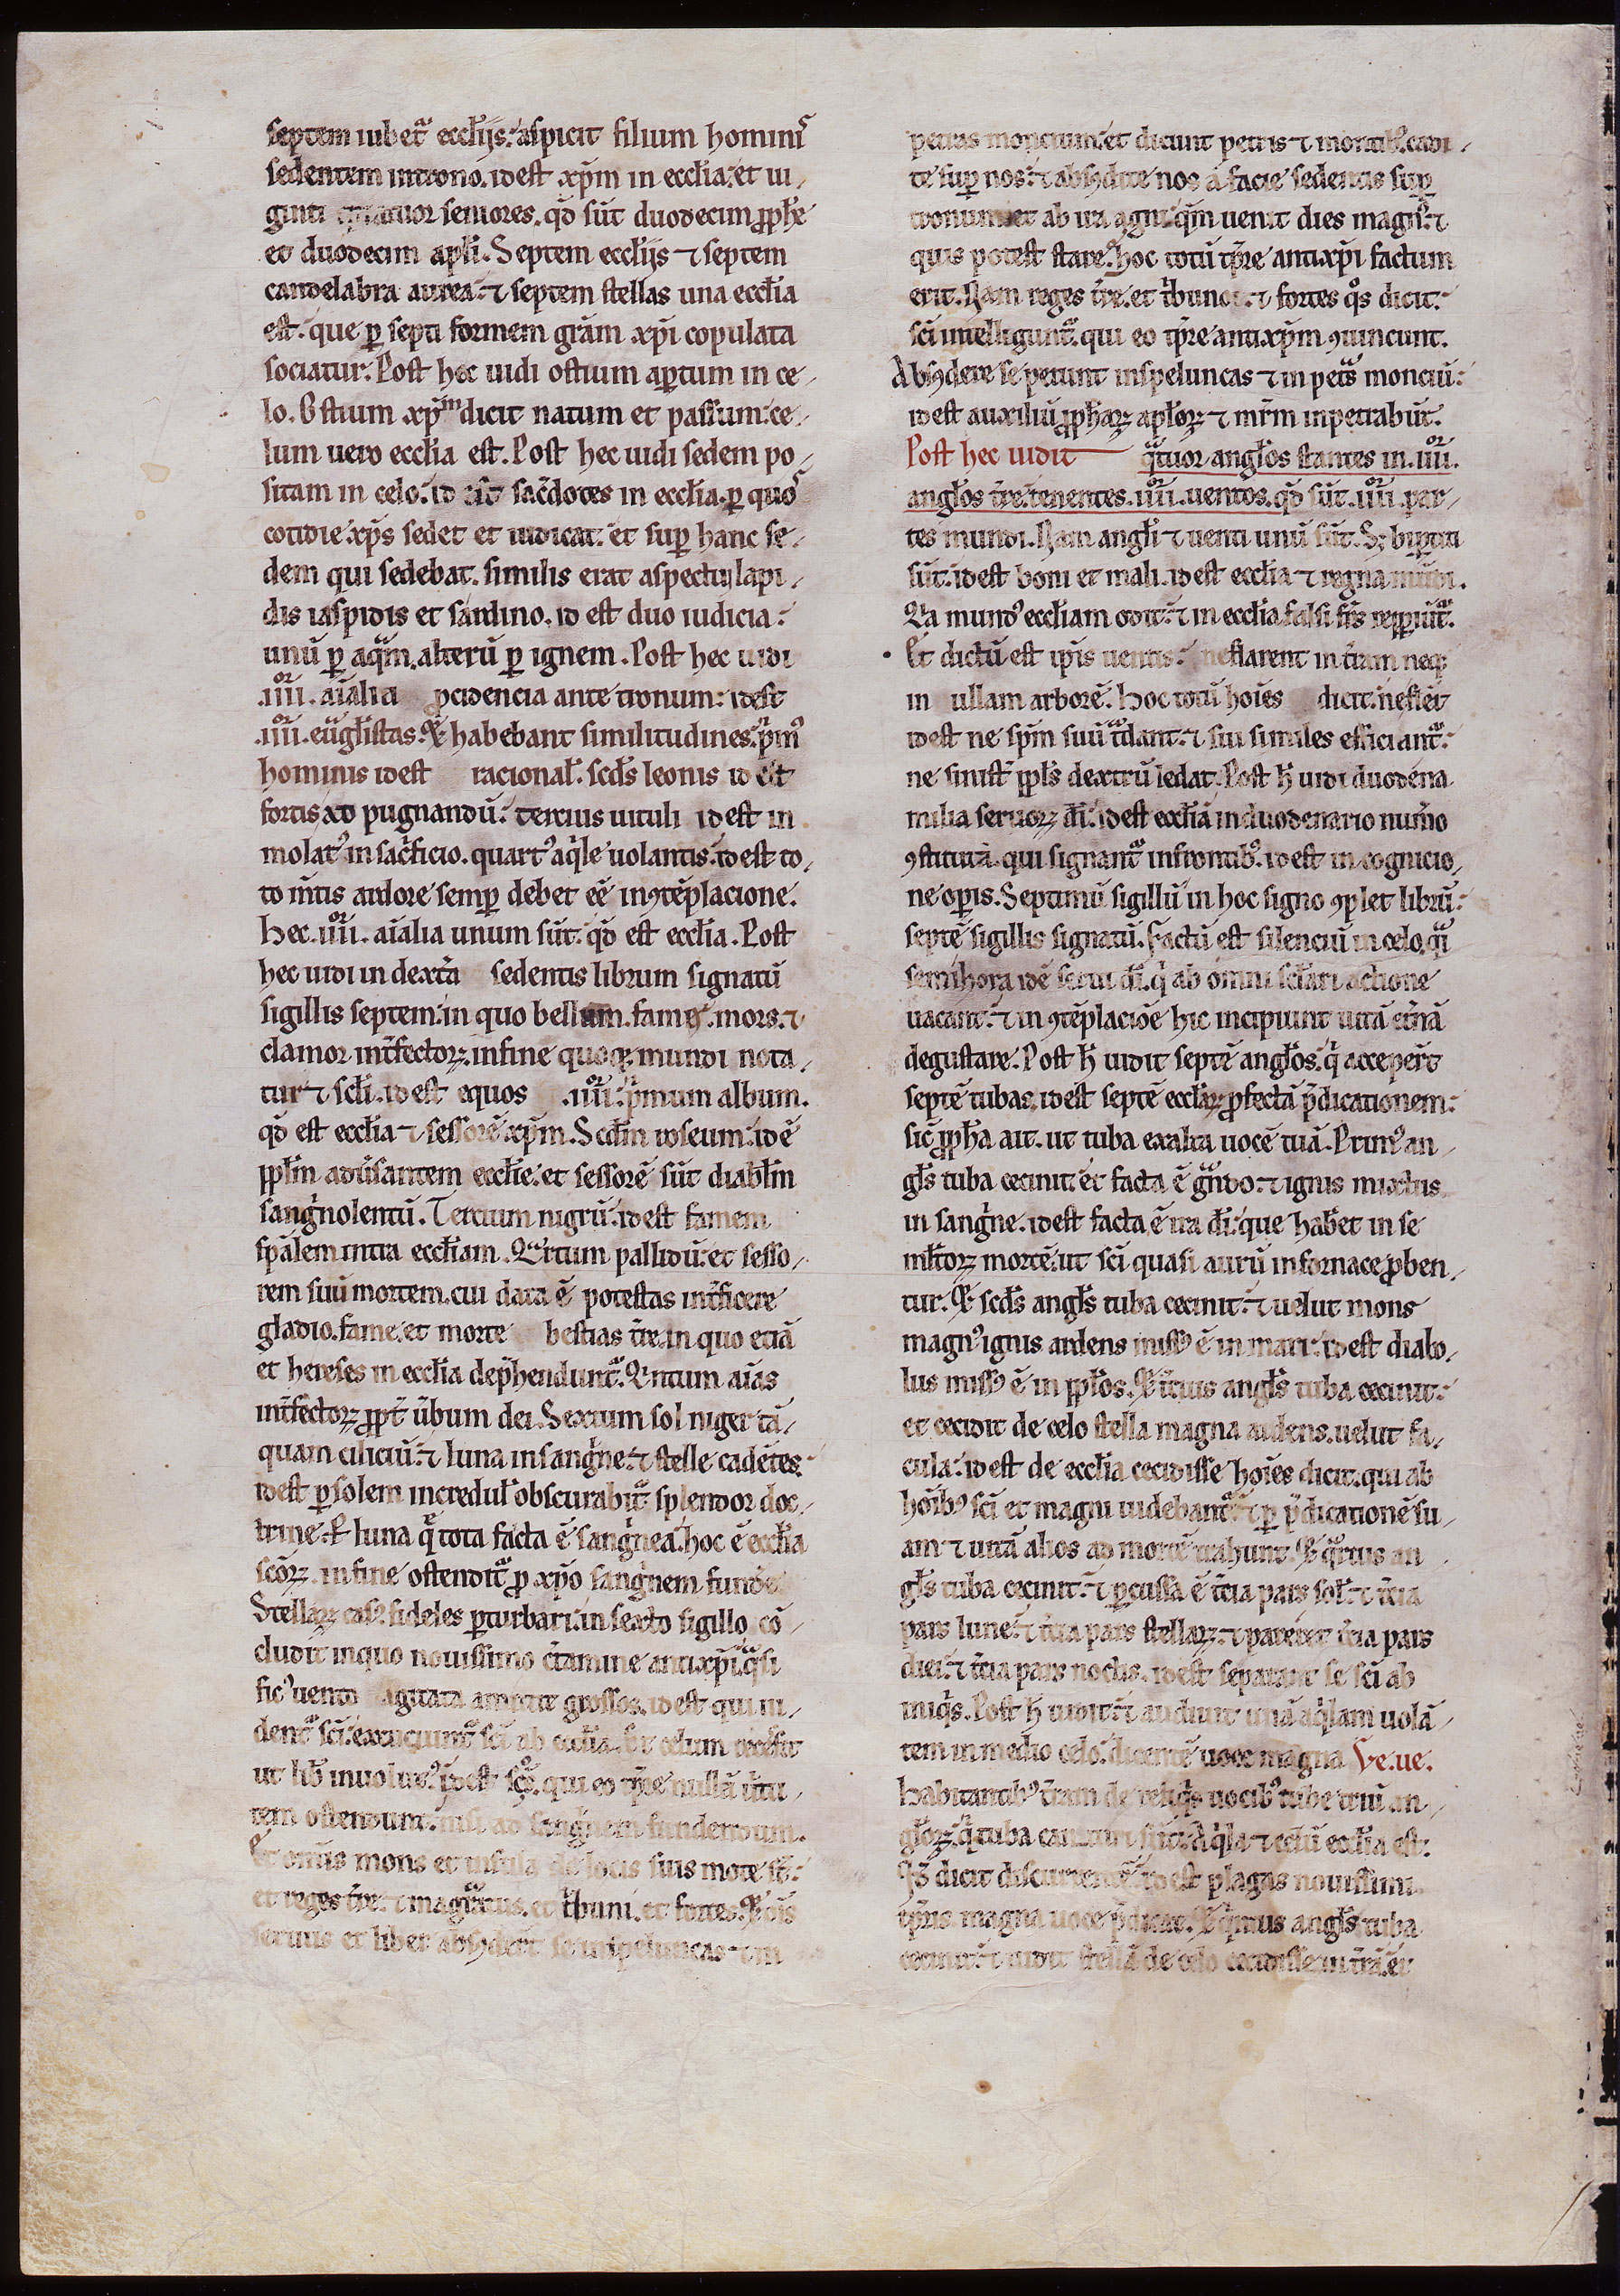 septem iubetᷓ eccłijs: aspicit filium hominis
sedentem introno. id est xp̄m in ecclia. et ui,
ginti quatuor seniores. qd̄ sūt duodecim ꝓphe
et duodecim apli. Septem eccłijs ⁊ septem
candelabra aurea. ⁊ septem stellas una ecclia
est. que ꝑ septi formem grām xp̄i copulata
sociatur. Post hec uidi ostium aꝑtum in ce,
lo. Ostium xp̄m dicit natum et passum: ce,
lum uero ecclia est. Post hec uidi sedem po,
sitam in celo. id est sac̄dotes in ecclia. ꝑ quos
cotidie xp̄s sedet et iudicat. et suꝑ hanc se,
dem qui sedebat. similis erat aspectui lapi,
dis iaspidis et sardino. id est duo iudicia:
unū ꝑ aqᷓm. alterū ꝑ ignem. Post hec uidi
.iiii. aīalia ꝓcidencia ante tronum: id est
.iiii. eug̃listas. Et habebant similitudines. pͥmꝰ
hominis id est racionał. scd̄s leonis id est
fortis ad pugnandū: tercius uituli id est in
molatꝰ in sac̄ficio. quartꝰ aqͥle uolantis. id est to,
to m̄tis ardore semꝑ debet eē in ꝯtēplacione.
Hec .iiii. aīalia unum sūt. qd̄ est ecclia. Post
hec uidi in dext̄a sedentis librum signatū
sigillis septem: in quo bellum. fames. mors. ⁊
clamor int̄fectoꝝ. in fine quoqꝫ mundi nota,
tur ⁊ scłi. id est equos .iiii. pͥmum album.
qd̄ est ecclia ⁊ sessorē xp̄m. Scdm̄ roseum: id ē
ppłm adūsantem ecclie. et sessorē sūt diabłm
sangͥnolentū. Tercium nigrū. id est famem
sp̄alem intra eccliam. Qᷓrtum pallidū. et sesso,
rem suū mortem. cui data ē potestas int̄ficere
gladio. fame. et morte bestias t̄re. in quo etiā
et hereses in ecclia dep̄henduntᷓ. Qͥntum aīas
int̄fectoꝝ ꝓpt̄ ūbum dei. Sextum sol niger tā,
quam ciliciū. ⁊ luna in sangͥne. ⁊ stelle cadētes.
id est ꝑ solem increduł obscurabitᷓ splendor doc,
trine. Et luna q̄ tota facta ē sangͥnea. hoc ē ecclia
scōꝝ. in fine ostenditᷓ ꝓ xp̄o sangͥnem funde
Stellaꝝ casꝰ. fideles ꝑturbari. in sexto sigillo cō,
cludit in quo nouissimo c̄tamine antixp̄i. qᷓsi
ficꝰ uento agitata amittit grossos. id est qui ui,
dentᷓ sci. ab ecclia. Et celum recessit
ut lib̄ inuolutꝰ. id est qui eo tp̄re nullā ūtu,
tem ostendunt. nisi ad sangͥnem fundendum.
Et omīs mons et insula de locis suis mote sᵗ:
et reges t̄re. ⁊ magᵗratus. et t̄buni. et fortes. Et oīs
seruus et liber absꝯdert se in speluncas ⁊ in
petras moncium: et dicunt petris ⁊ montibꝰ. cadi,
te suꝑ nos. ⁊ absꝯdite nos a facie sedentis suꝑ
tronum. et ab ira agni. qm̄ uenit dies magnꝰ. ⁊
quis potest stare. Hoc totū tp̄re antixp̄i factum
erit. Nam reges t̄re. et t̄bunos. ⁊ fortes qͦs dicit:
sci intelliguntᷓ. qui eo tp̄re antixp̄m ꝯuincunt.
Absꝯdere se petunt in speluncas ⁊ in petᷓs monciū:
id est auxiliū ꝓphaꝝ apłoꝝ ⁊ mr̄m inpetrabūt.
Post hec uidit qᷓtuor angłos stantes in .iiii.
angłos t̄re. tenentes .iiii. uentos. qd̄ sūt .iiii. par,
tes mundi. Nam angłi ⁊ uenti unū sūt. Sꝫ biꝑtiti
sūt. id est boni et mali. id est ecclia ⁊ regna mūdi.
Qᷓa mundꝰ eccliam odit. ⁊ in ecclia falsi fr̄s reꝑiūtᷓ.
Et dictū est ip̄is uentis. neflarent in t̄ram neqꝫ
in ullam arborē. Hoc totū hoīes dicit. ne flēt
id est ne sp̄m suū t̄dant. ⁊ sui similes efficiantᷓ:
ne sinist̄ ppłs dextrū ledat. Post h̄ uidi duodena
milia seruoꝝ di. id est eccliā in duodenario numͦo
ꝯstitutā. qui signantᷓ in frontibꝰ. id est in cognicio,
ne oꝑis. Septimū sigillū in hoc signo ꝯplet librū:
septē sigillis signatū. Factū est silenciū in celo. qᷓi
semihora id ē serui di. qͥ ab omni scłari actione
uacant. ⁊ in ꝯtēplaciōe hic incipiunt uitā et̄nā
degustare. Post h̄ uidit septē angłos. qͥ acceper̄t
septē tubas. id est septē eccłiaꝝ ꝑfectā p̄dicationem:
sic ꝓpha ait. ut tuba exalta uocē tuā. Primꝰ an,
głs tuba cecinit. et facta ē gͣndo. ⁊ ignis mixtus
in sangͥne. id est facta ē ira di. que habet in se
młtoꝝ mortē. ut sci quasi aurū in fornace ꝓben,
tur. Et scd̄s angłs tuba cecinit. ⁊ uelut mons
magnꝰ ignis ardens missꝰ ē in mari. id est diabo,
lus missꝰ ē in ppłos. Et t̄cius angłs tuba cecinit:
et cecidit de celo stella magna ardens. uelut fa,
cula. id est de ecclia cecidisse hoīes dicit. qui ab
hoībꝰ sci et magni uidebantᷓ. ⁊ ꝑ p̄dicationē su,
am ⁊ uitā alios ad mortē trahunt. Et qᷓrtus an
głs tuba cecinit. ⁊ ꝑcussa ē t̄cia pars soł. ⁊ t̄cia
pars lune. ⁊ t̄cia pars stellaꝝ. ⁊ pareret t̄cia pars
diei. ⁊ t̄cia pars noctis. id est separant se sci ab
iniqͥs. Post h̄ uidit. ⁊ audiuit unā aqͥlam uolā,
tem in medio celo. dicentē uoce magna Ve. ue.
Habitantibꝰ t̄ram de reliqͥs uocibꝰ tube triū an,
głoꝝ. qͥ tuba canituri sūt. Aqͥla ⁊ celū ecclia est:
qd̄ dicit discurrentē. id est plagas nouissimi
tp̄ris. magna uoce p̄dicat. Et qͥntus angłs tuba
cecinit. ⁊ uidit stellā de celo cecidisse in t̄rā. et